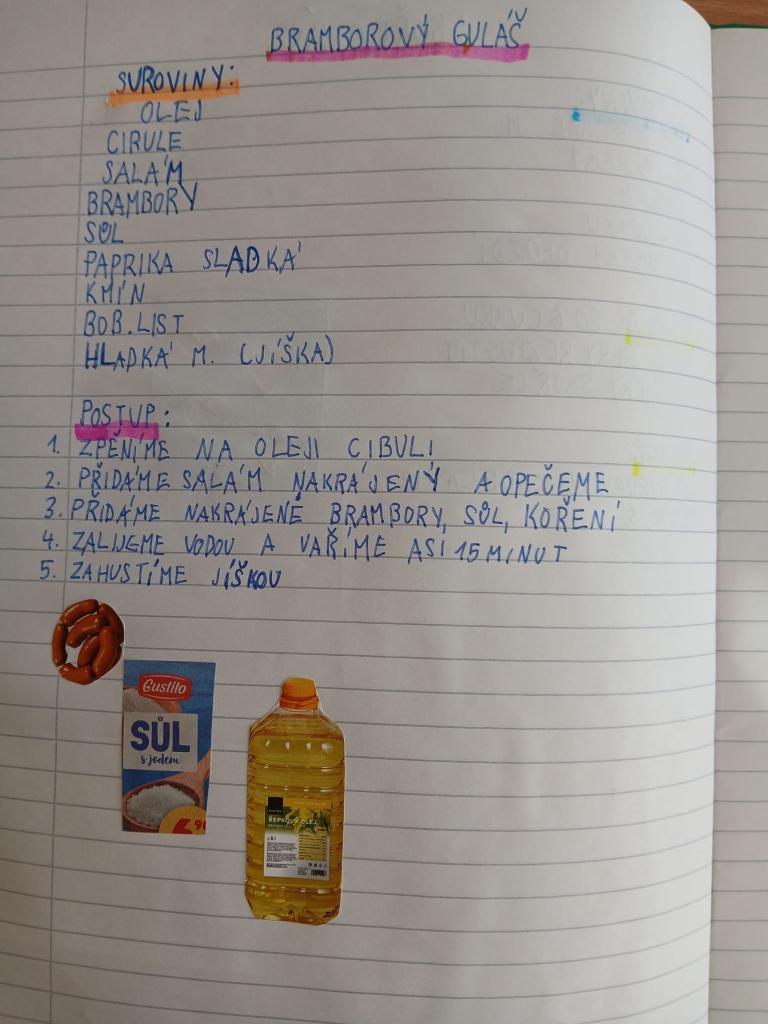 BRAMBOROVÝ GULÁŠ
SUROVINY:
OLEJ
CIBULE
SALÁM
BRAMBORY
SŮL
PAPRIKA SLADKÁ
KMÍN
BOB.LIST
HLADKÁ M. (JÍŠKA)
POSTUP:
1. ZPĚNÍME NA OLEJI CIBULI
2. PŘIDÁME SALÁM NAKRÁJENÝ A OPEČEME
3. PŘIDÁME NAKRÁJENÉ BRAMBORY, SŮL, KOŘENÍ
4. ZALIJEME VODOU A VAŘÍME ASI 15 MINUT
5. ZAHUSTÍME JÍŠKOU
Gustito
SŮL
s jodem
6 90
ŘEPKOVÝ OLEJ